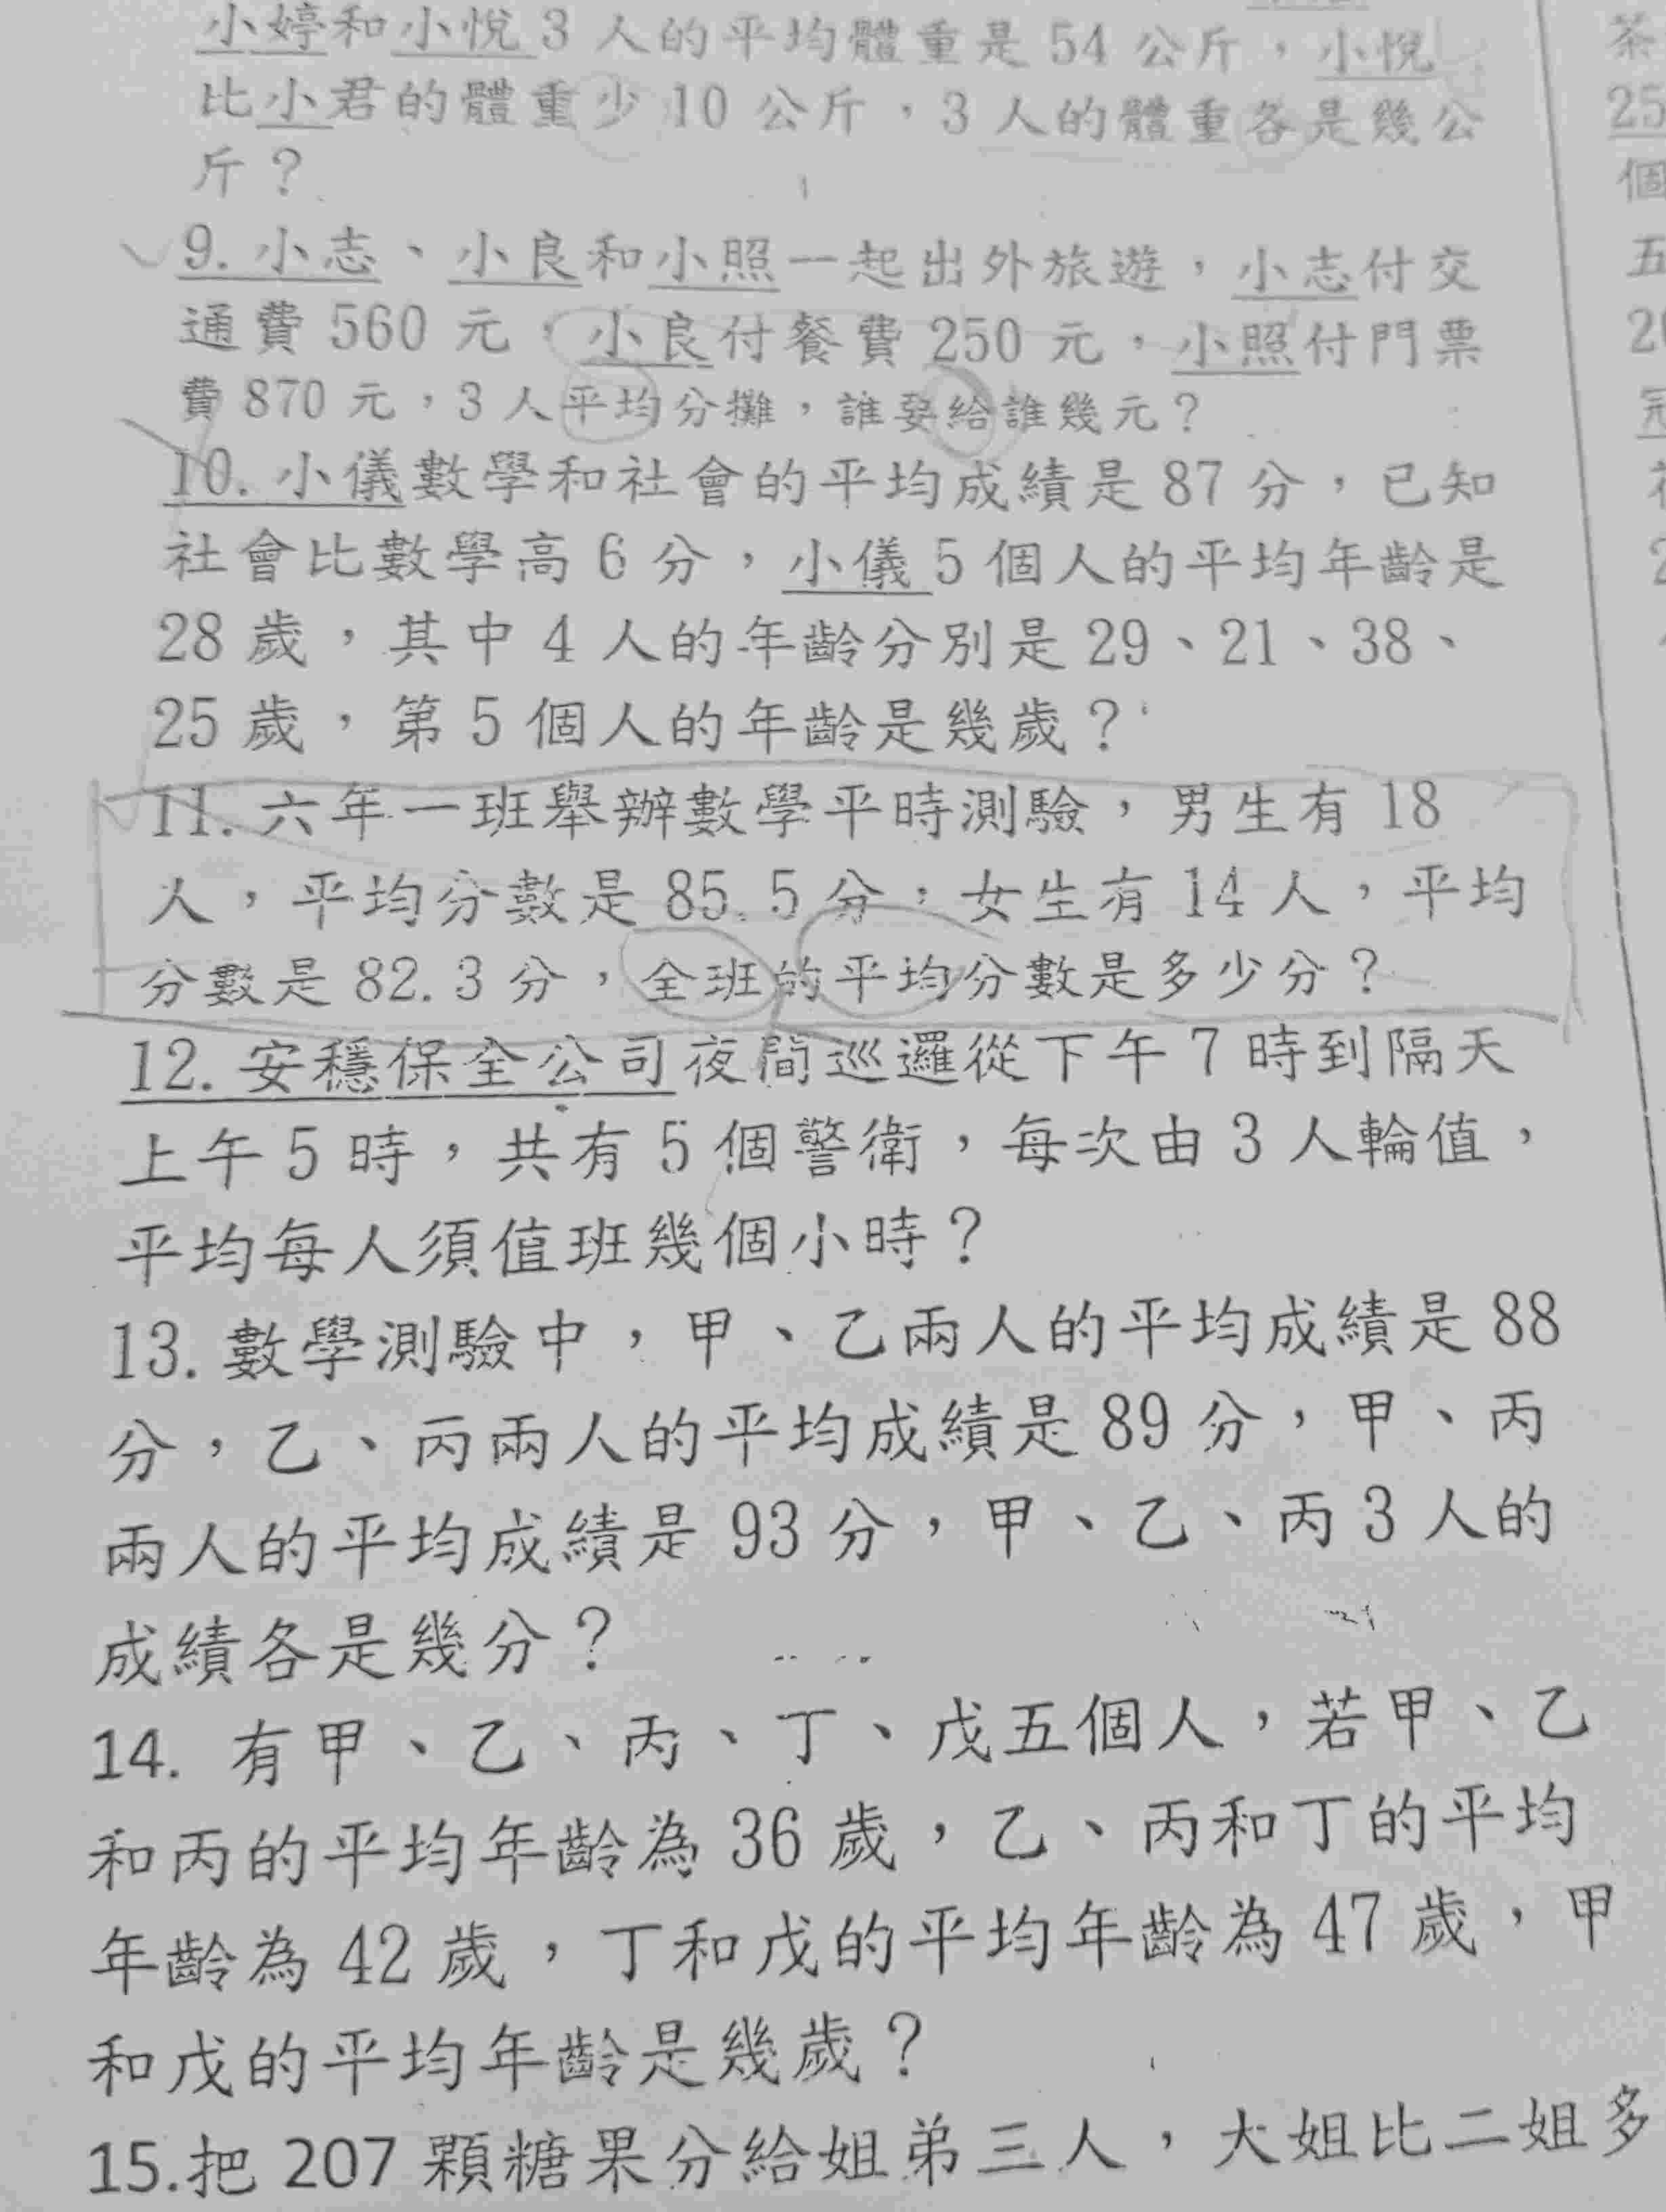 小婷和小悅 3 人的平均體重是 54 公斤，小悅
比小君的體重少 10 公斤，3 人的體重各是幾公
斤？
9. 小志、小良和小照一起出外旅遊，小志付交
通費 560 元，小良付餐費 250 元，小照付門票
費 870 元，3 人平均分攤，誰要給誰幾元？
10. 小儀數學和社會的平均成績是 87 分，已知
社會比數學高 6 分，小儀 5 個人的平均年齡是
28 歲，其中 4 人的年齡分別是 29、21、38、
25 歲，第 5 個人的年齡是幾歲？
11. 六年一班舉辦數學平時測驗，男生有 18
人，平均分數是 85.5 分；女生有 14 人，平均
分數是 82.3 分，全班的平均分數是多少分？
12. 安穩保全公司夜間巡邏從下午 7 時到隔天
上午 5 時，共有 5 個警衛，每次由 3 人輪值，
平均每人須值班幾個小時？
13. 數學測驗中，甲、乙兩人的平均成績是 88
分，乙、丙兩人的平均成績是 89 分，甲、丙
兩人的平均成績是 93 分，甲、乙、丙 3 人的
成績各是幾分？
14. 有甲、乙、丙、丁、戊五個人，若甲、乙
和丙的平均年齡為 36 歲，乙、丙和丁的平均
年齡為 42 歲，丁和戊的平均年齡為 47 歲，甲
和戊的平均年齡是幾歲？
15.把 207 顆糖果分給姐弟三人，大姐比二姐多
茶
25
個
五